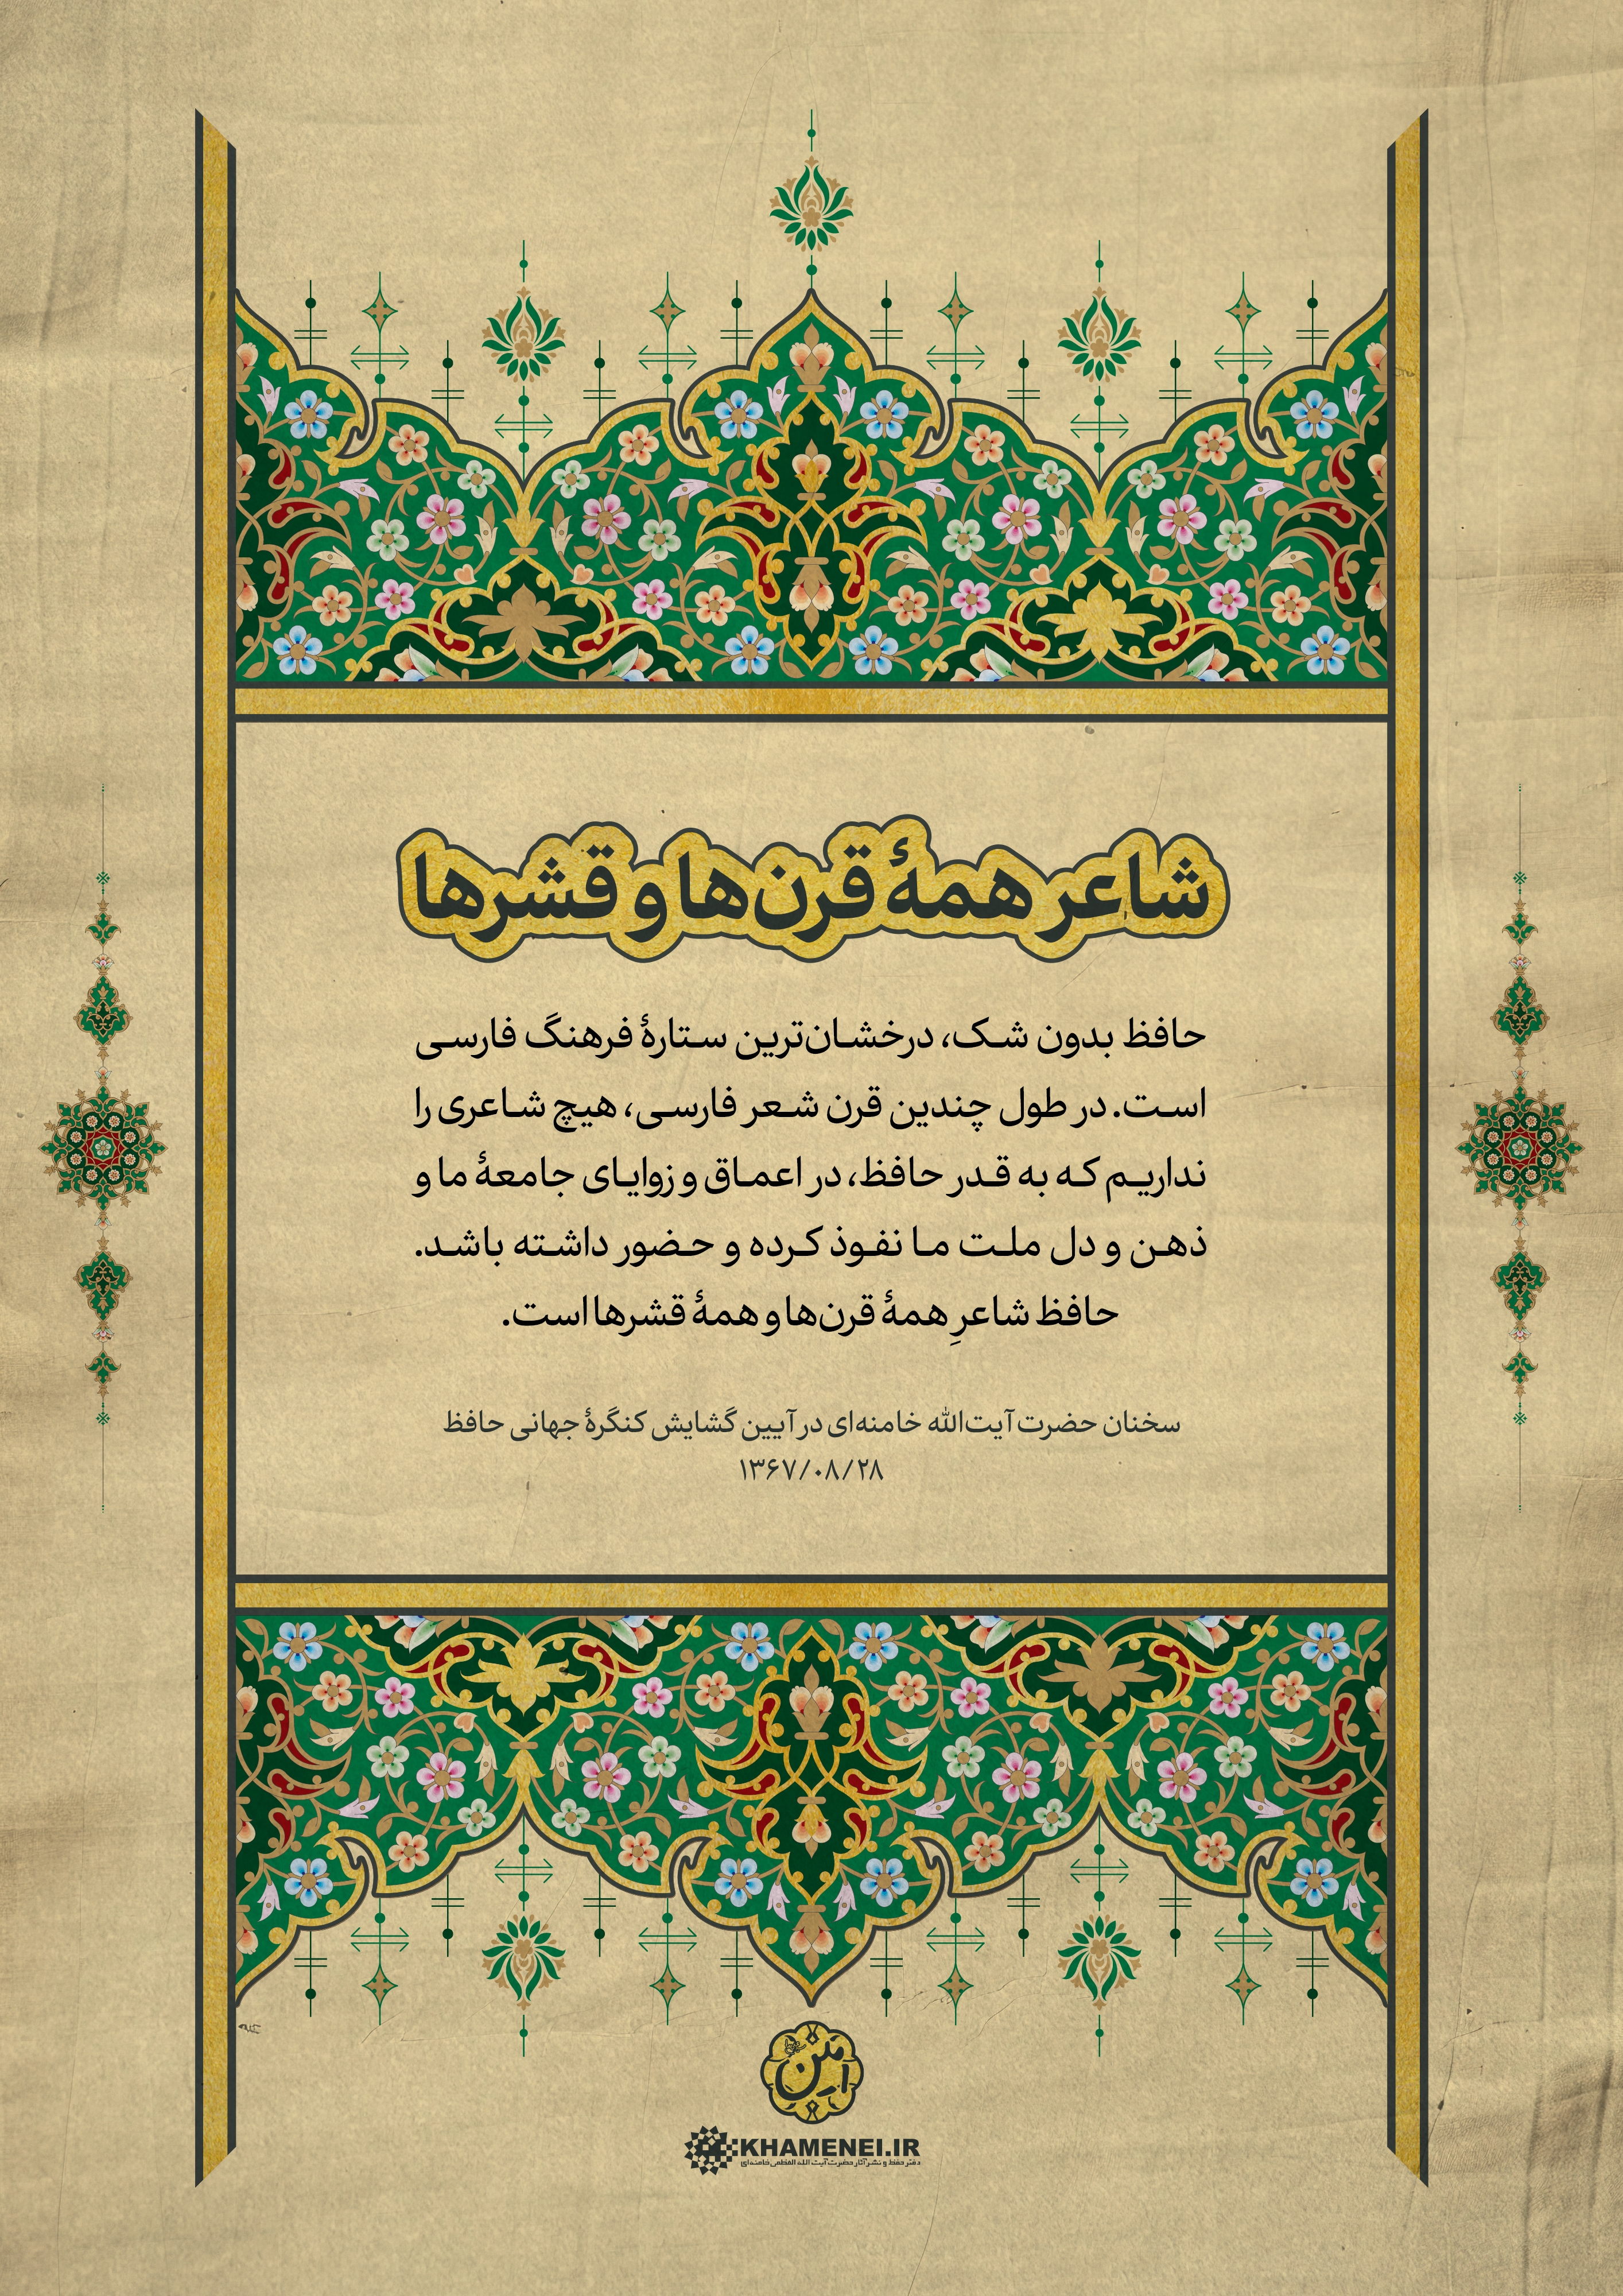 شاعر همهٔ قرن‌ها و قشرها
حافظ بدون شک، درخشان‌ترین ستارهٔ فرهنگ فارسی
است. در طول چندین قرن شعر فارسی، هیچ شاعری را
نداریم که به قدر حافظ، در اعماق و زوایای جامعهٔ ما و
ذهن و دل ملت ما نفوذ کرده و حضور داشته باشد.
حافظ شاعرِ همهٔ قرن‌ها و همهٔ قشرها است.
سخنان حضرت آیت‌الله خامنه‌ای در آیین گشایش کنگرهٔ جهانی حافظ
۱۳۶۷/۰۸/۲۸
KHAMENEI.IR
دفتر حفظ و نشر آثار حضرت آیت الله العظمی خامنه‌ای